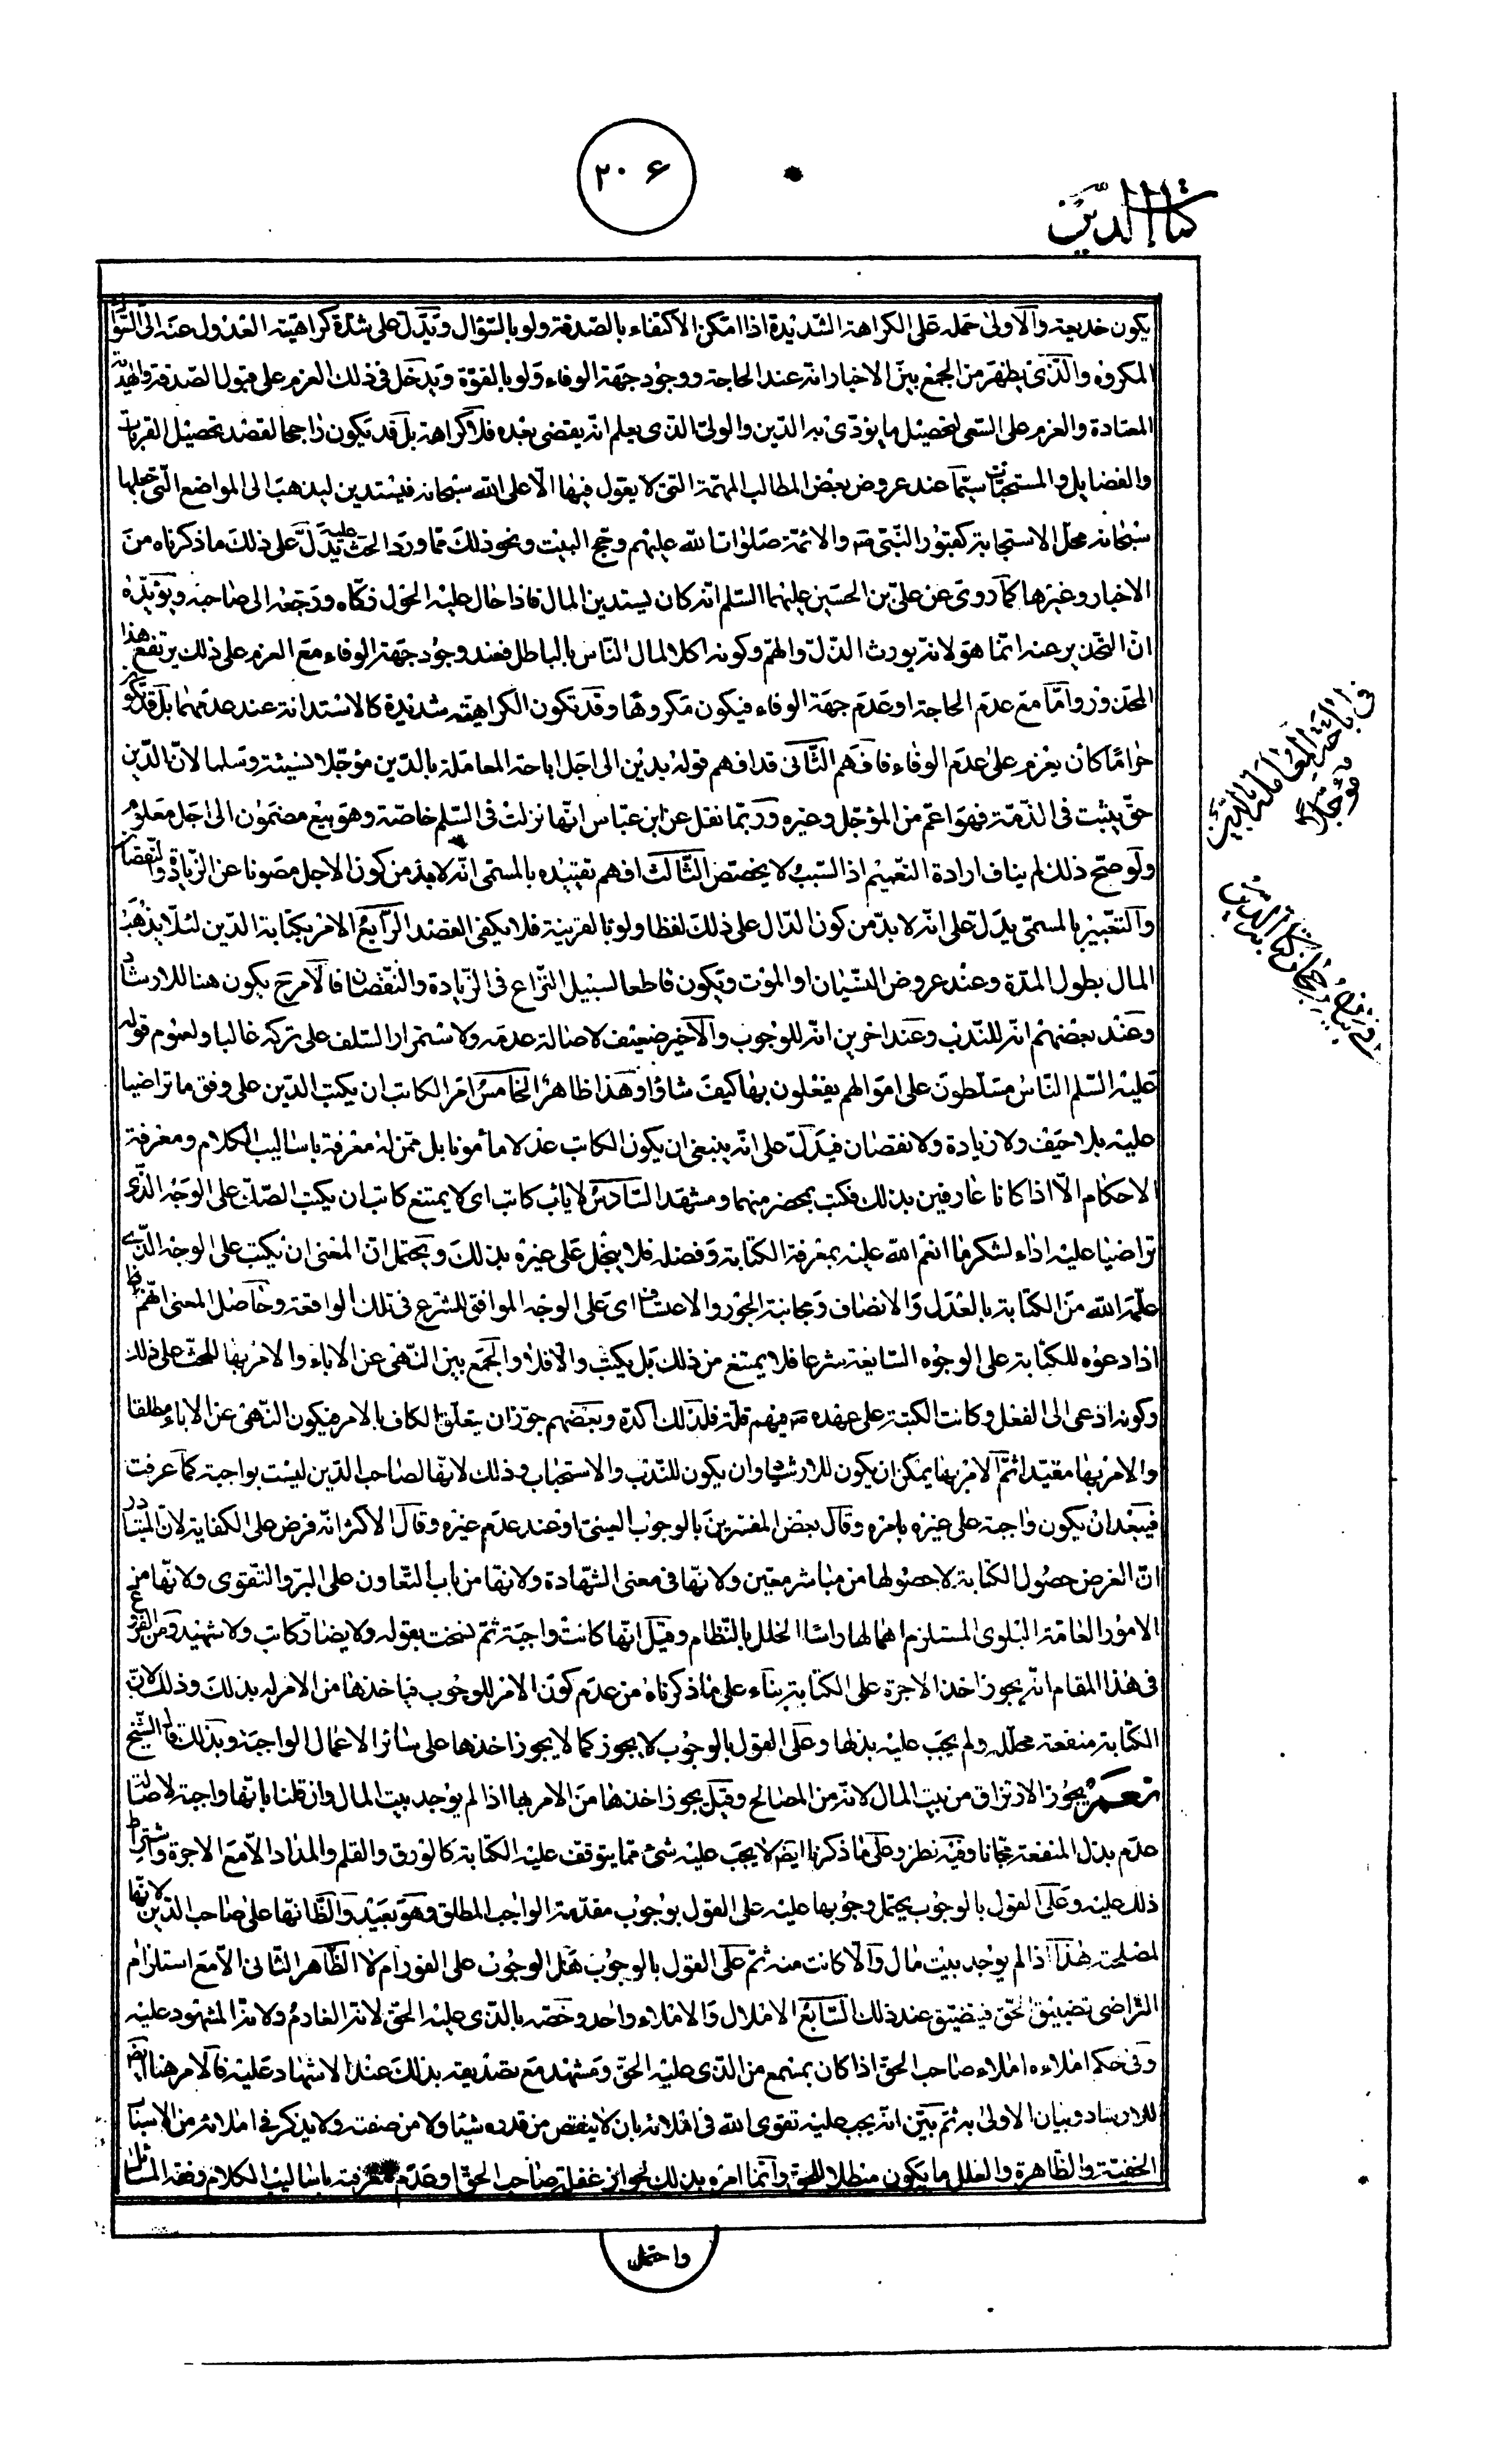 ٢٠۶
كتاب الدين
يكون خديعة والاولى حمله على الكراهة الشديدة اذا امكن الاكتفاء بالصدقة ولو بالسؤال ويدل على شدة كراهيته العدول عنه الى السؤال
المكروه والذى يظهر من الجمع بين الاخبار انه عند الحاجة ووجود جهة الوفاء ولو بالقوة ويدخل فى ذلك العزم على قبول الصدقة والهدية
المعتادة والعزم على السعى لتحصيل ما يؤدى به الدين والولى الذى يعلم انه يقضى بعده فلا كراهة بل قد يكون راجحا لقصد تحصيل القربات
والفضايل والمستحبات سيما عند عروض بعض المطالب المهمة التى لا يعول فيها الا على الله سبحانه فيستدين ليذهب الى المواضع التى جعلها
سبحانه محل الاستجابة كقبور النبى ص والائمة صلوات الله عليهم وحج البيت ونحو ذلك مما ورد الحث عليه يدل على ذلك ما ذكرناه من
الاخبار وغيرها كما روى عن على بن الحسين عليهما السلم انه كان يستدين المال فاذا حال عليه الحول زكاه ورجعه الى صاحبه ويؤيده
ان التحذير عنه انما هو لانه يورث الذل والهم وكونه اكلا لمال الناس بالباطل فعند وجود جهة الوفاء مع العزم على ذلك يرتفع هذا
المحذور واما مع عدم الحاجة او عدم جهة الوفاء فيكون مكروها وقد تكون الكراهية شديدة كالاستدانة عند عدمهما بل قد يكون
حراما كان يعزم على عدم الوفاء فافهم الثانى قد افهم قوله بدين الى اجل اباحة المعاملة بالدين مؤجلا نسيئة وسلما لان الدين
حق يثبت فى الذمة فهو اعم من المؤجل وغيره وربما نقل عن ابن عباس انها نزلت فى السلم خاصة وهو بيع مضمون الى اجل معلوم
ولو صح ذلك لم يناف ارادة التعميم اذ السبب لا يخصص الثالث افهم تقييده بالمسمى انه لا بد من كون الاجل مصونا عن الزيادة والنقصان
والتعبير بالمسمى يدل على انه لا بد من كون الدال على ذلك لفظا ولو بالقرينة فلا يكفى القصد الرابع الامر بكتابة الدين لئلا يذهب
المال بطول المدة وعند عروض النسيان او الموت ويكون قاطعا لسبيل النزاع فى الزيادة والنقصان فالامر ح يكون هنا للارشاد
وعند بعضهم انه للندب وعند اخرين انه للوجوب والاخير ضعيف لاصالة عدمه ولاستمرار السلف على تركه غالبا ولعموم قوله
عليه السلم الناس مسلطون على اموالهم يفعلون بها كيف شاؤا وهذا ظاهر الخامس امر الكاتب ان يكتب الدين على وفق ما تراضيا
عليه بلا حيف ولا زيادة ولا نقصان فيدل على انه ينبغى ان يكون الكاتب عدلا مأمونا بل ممن له معرفة باساليب الكلام ومعرفة
الاحكام الا اذا كانا عارفين بذلك فكتب بمحضر منهما ومشهد السادس لا ياب كاتب اى لا يمتنع كاتب ان يكتب الصك على الوجه الذى
تراضيا عليه اداء لشكر ما انعم الله عليه بمعرفة الكتابة وفضله فلا يبخل على غيره بذلك ويحتمل ان المعنى ان يكتب على الوجه الذى
علمه الله من الكتابة بالعدل والانصاف ومجانبة الجور والاعتساف اى على الوجه الموافق للشرع فى تلك الواقعة وحاصل المعنى انهم
اذا دعوه للكتابة على الوجوه السايغة شرعا فلا يمتنع من ذلك بل يكتب والا فلا والجمع بين النهى عن الاباء والامر بها للحث على ذلك
وكونه ادعى الى الفعل وكانت الكتبة على عهده ص فيهم قلة فلذلك اكده وبعضهم جوز ان يتعلق الكاف بالامر فيكون النهى عن الاباء مطلقا
والامر بها مقيدا ثم الامر بها يمكن ان يكون للارشاد وان يكون للندب والاستحباب وذلك لانها لصاحب الدين ليست بواجبة كما عرفت
فيبعد ان يكون واجبة على غيره بامره وقال بعض المفسرين بالوجوب العينى او عند عدم غيره وقال الاكثر انه فرض على الكفاية لان المتبادر
ان الغرض حصول الكتابة لا حصولها من مباشر معين ولانها فى معنى الشهادة ولانها من باب التعاون على البر والتقوى ولانها من
الامور العامة البلوى المستلزم اهمالها راسا الخلل بالنظام وقيل انها كانت واجبة ثم نسخت بقوله ولا يضار كاتب ولا شهيد ومن الفروع
فى هذا المقام انه يجوز اخذ الاجرة على الكتابة بناء على ما ذكرناه من عدم كون الامر للوجوب فياخذها من الامر له بذلك وذلك لان
الكتابة منفعة محللة ولم يجب عليه بذلها وعلى القول بالوجوب لا يجوز كما لا يجوز اخذها على سائر الاعمال الواجبة وبذلك قال الشيخ
نعم يجوز الارتزاق من بيت المال لانه من المصالح وقيل يجوز اخذها من الامر بها اذا لم يوجد بيت المال وان قلنا بانها واجبة لاصالة
عدم بذل المنفعة مجانا وفيه نظر وعلى ما ذكرنا ايضا لا يجب عليه شئ مما يتوقف عليه الكتابة كالورق والقلم والمداد الا مع الاجرة واشتراط
ذلك عليه وعلى القول بالوجوب يحتمل وجوبها عليه على القول بوجوب مقدمة الواجب المطلق وهو بعيد والظ انها على صاحب الدين لانها
لمصلحته هذا اذا لم يوجد بيت مال والا كانت منه ثم على القول بالوجوب هل الوجوب على الفور ام لا الظاهر الثانى الا مع استلزام
التراضى تضييق الحق فيضيق عند ذلك السابع الاملال والاملاء واحد وخصه بالذى عليه الحق لانه الغارم ولانه المشهود عليه
وفى حكم املاءه املاء صاحب الحق اذا كان بمسمع من الذى عليه الحق ومشهد مع تصديقه بذلك عند الاشهاد عليه فالامر هنا ايض
للارشاد وبيان الاولى به ثم بين انه يجب عليه تقوى الله فى املائه بان لا ينقص من قدره شيئا ولا من صفته ولا يذكر فى املائه من الاسباب
الخفية والظاهرة والعلل ما يكون مبطلا للحق وانما امره بذلك لجواز غفلة صاحب الحق او عدم معرفته باساليب الكلام وفقه المسائل
واحتمل
فى اباحة المعاملة بالدين
مؤجلا